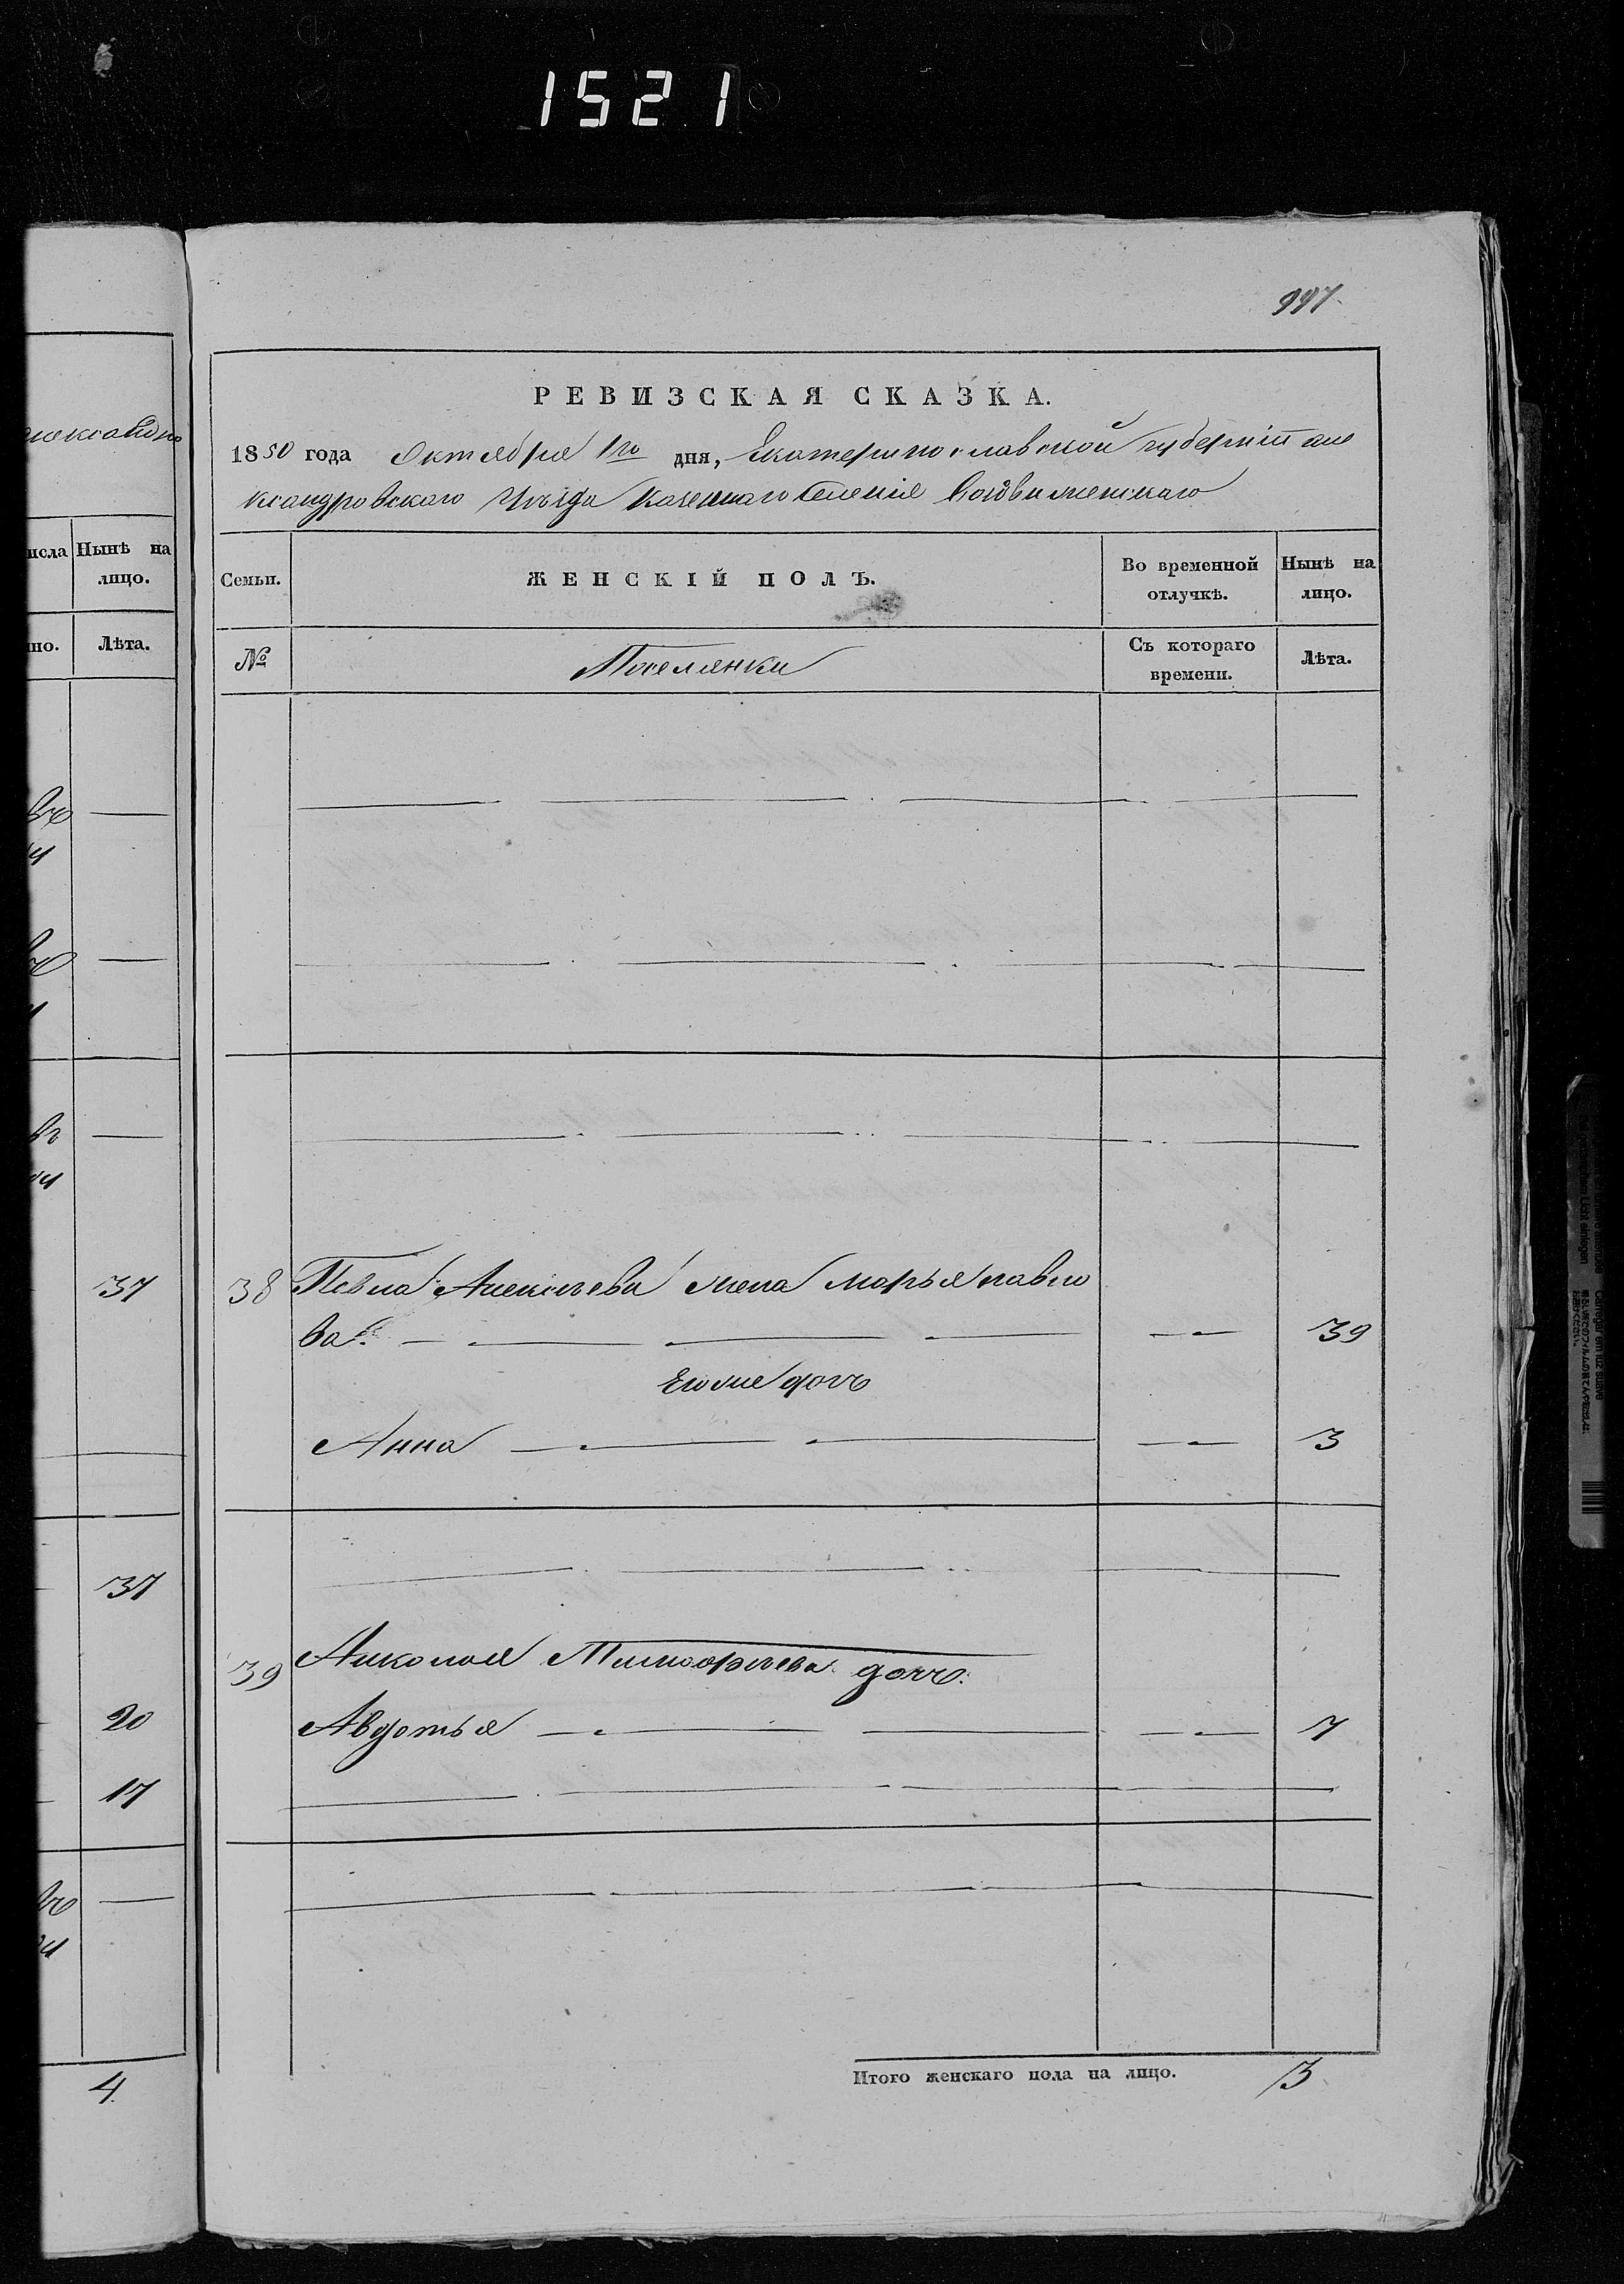 1521
997
РЕВИЗСКАЯ СКАЗКА.
1850 года Октября 1го дня, Екатеринославской губерніи Але
ксандровскаго Уѣзда Казеннаго Селенія Воздвиженскаго
Семьи.
ЖЕНСКІЙ ПОЛЪ.
Во временной отлучкѣ.
Нынѣ на лицо.
№
Поселянки
Съ котораго времени.
Лѣта.
38 Павла Алексѣева жена Марья Павло
ва. 39
Его же дочь
Анна 3
39 Николая Тимофѣева дочь
Авдотья 7
Итого женскаго пола на лицо. 3
Александро
исла
Нынѣ на лицо.
но.
Лѣта.
37
37
20
17
4.